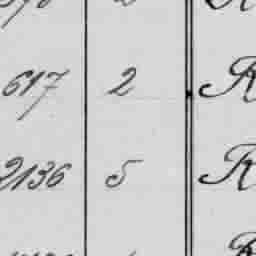 617 2 R
2136 5 R